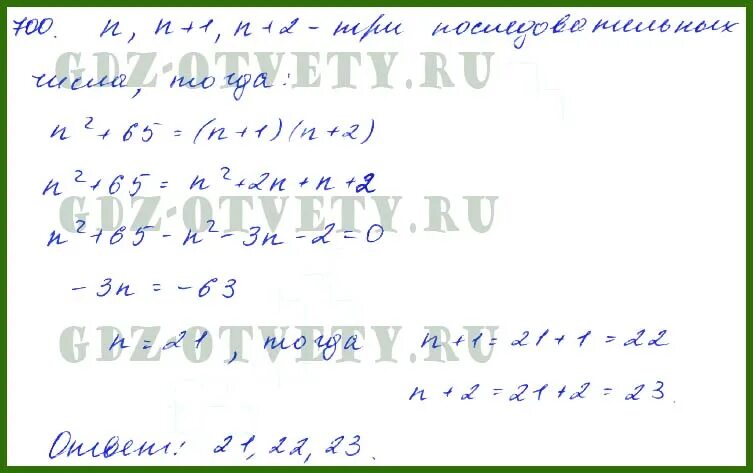 700. n, n+1, n+2 - три последовательных
числа, тогда:
n²+65 = (n+1)(n+2)
n²+65 = n²+2n+n+2
n²+65-n²-3n-2=0
-3n = -63
n=21, тогда n+1=21+1=22
n+2=21+2=23.
Ответ: 21, 22, 23.
GDZ-OTVETY.RU
GDZ-OTVETY.RU
GDZ-OTVETY.RU